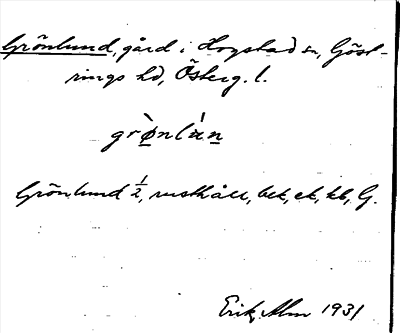 Grönlund, gård i Hogstad sn, Göst-
rings hd, Österg. l.
grø̀nlán
Grönlund ½, rusthåll, bek, ek, kb, G.
Erik Alm 1931